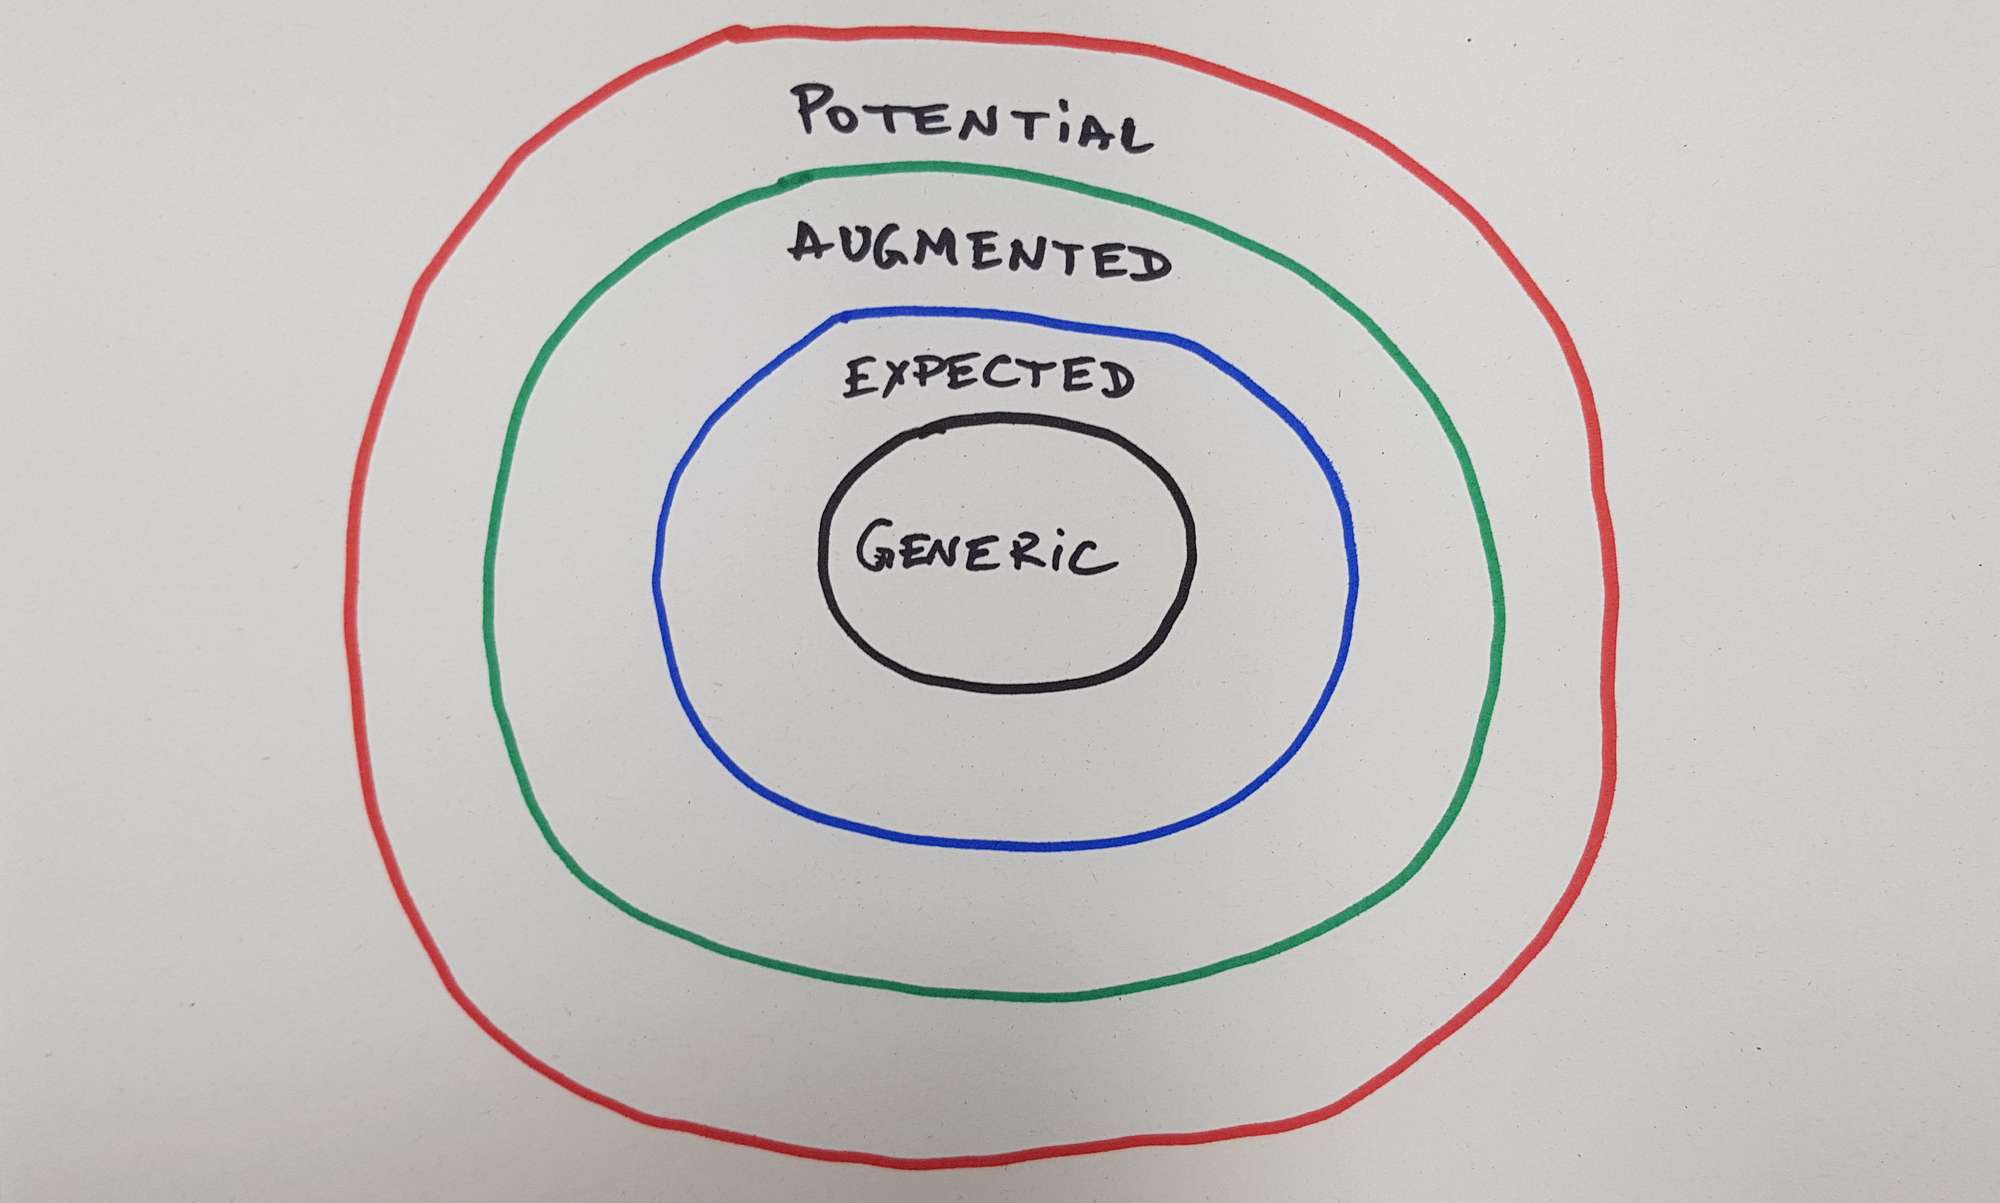 POTENTiAL
AUGMENTED
EXPECTED
GENERiC